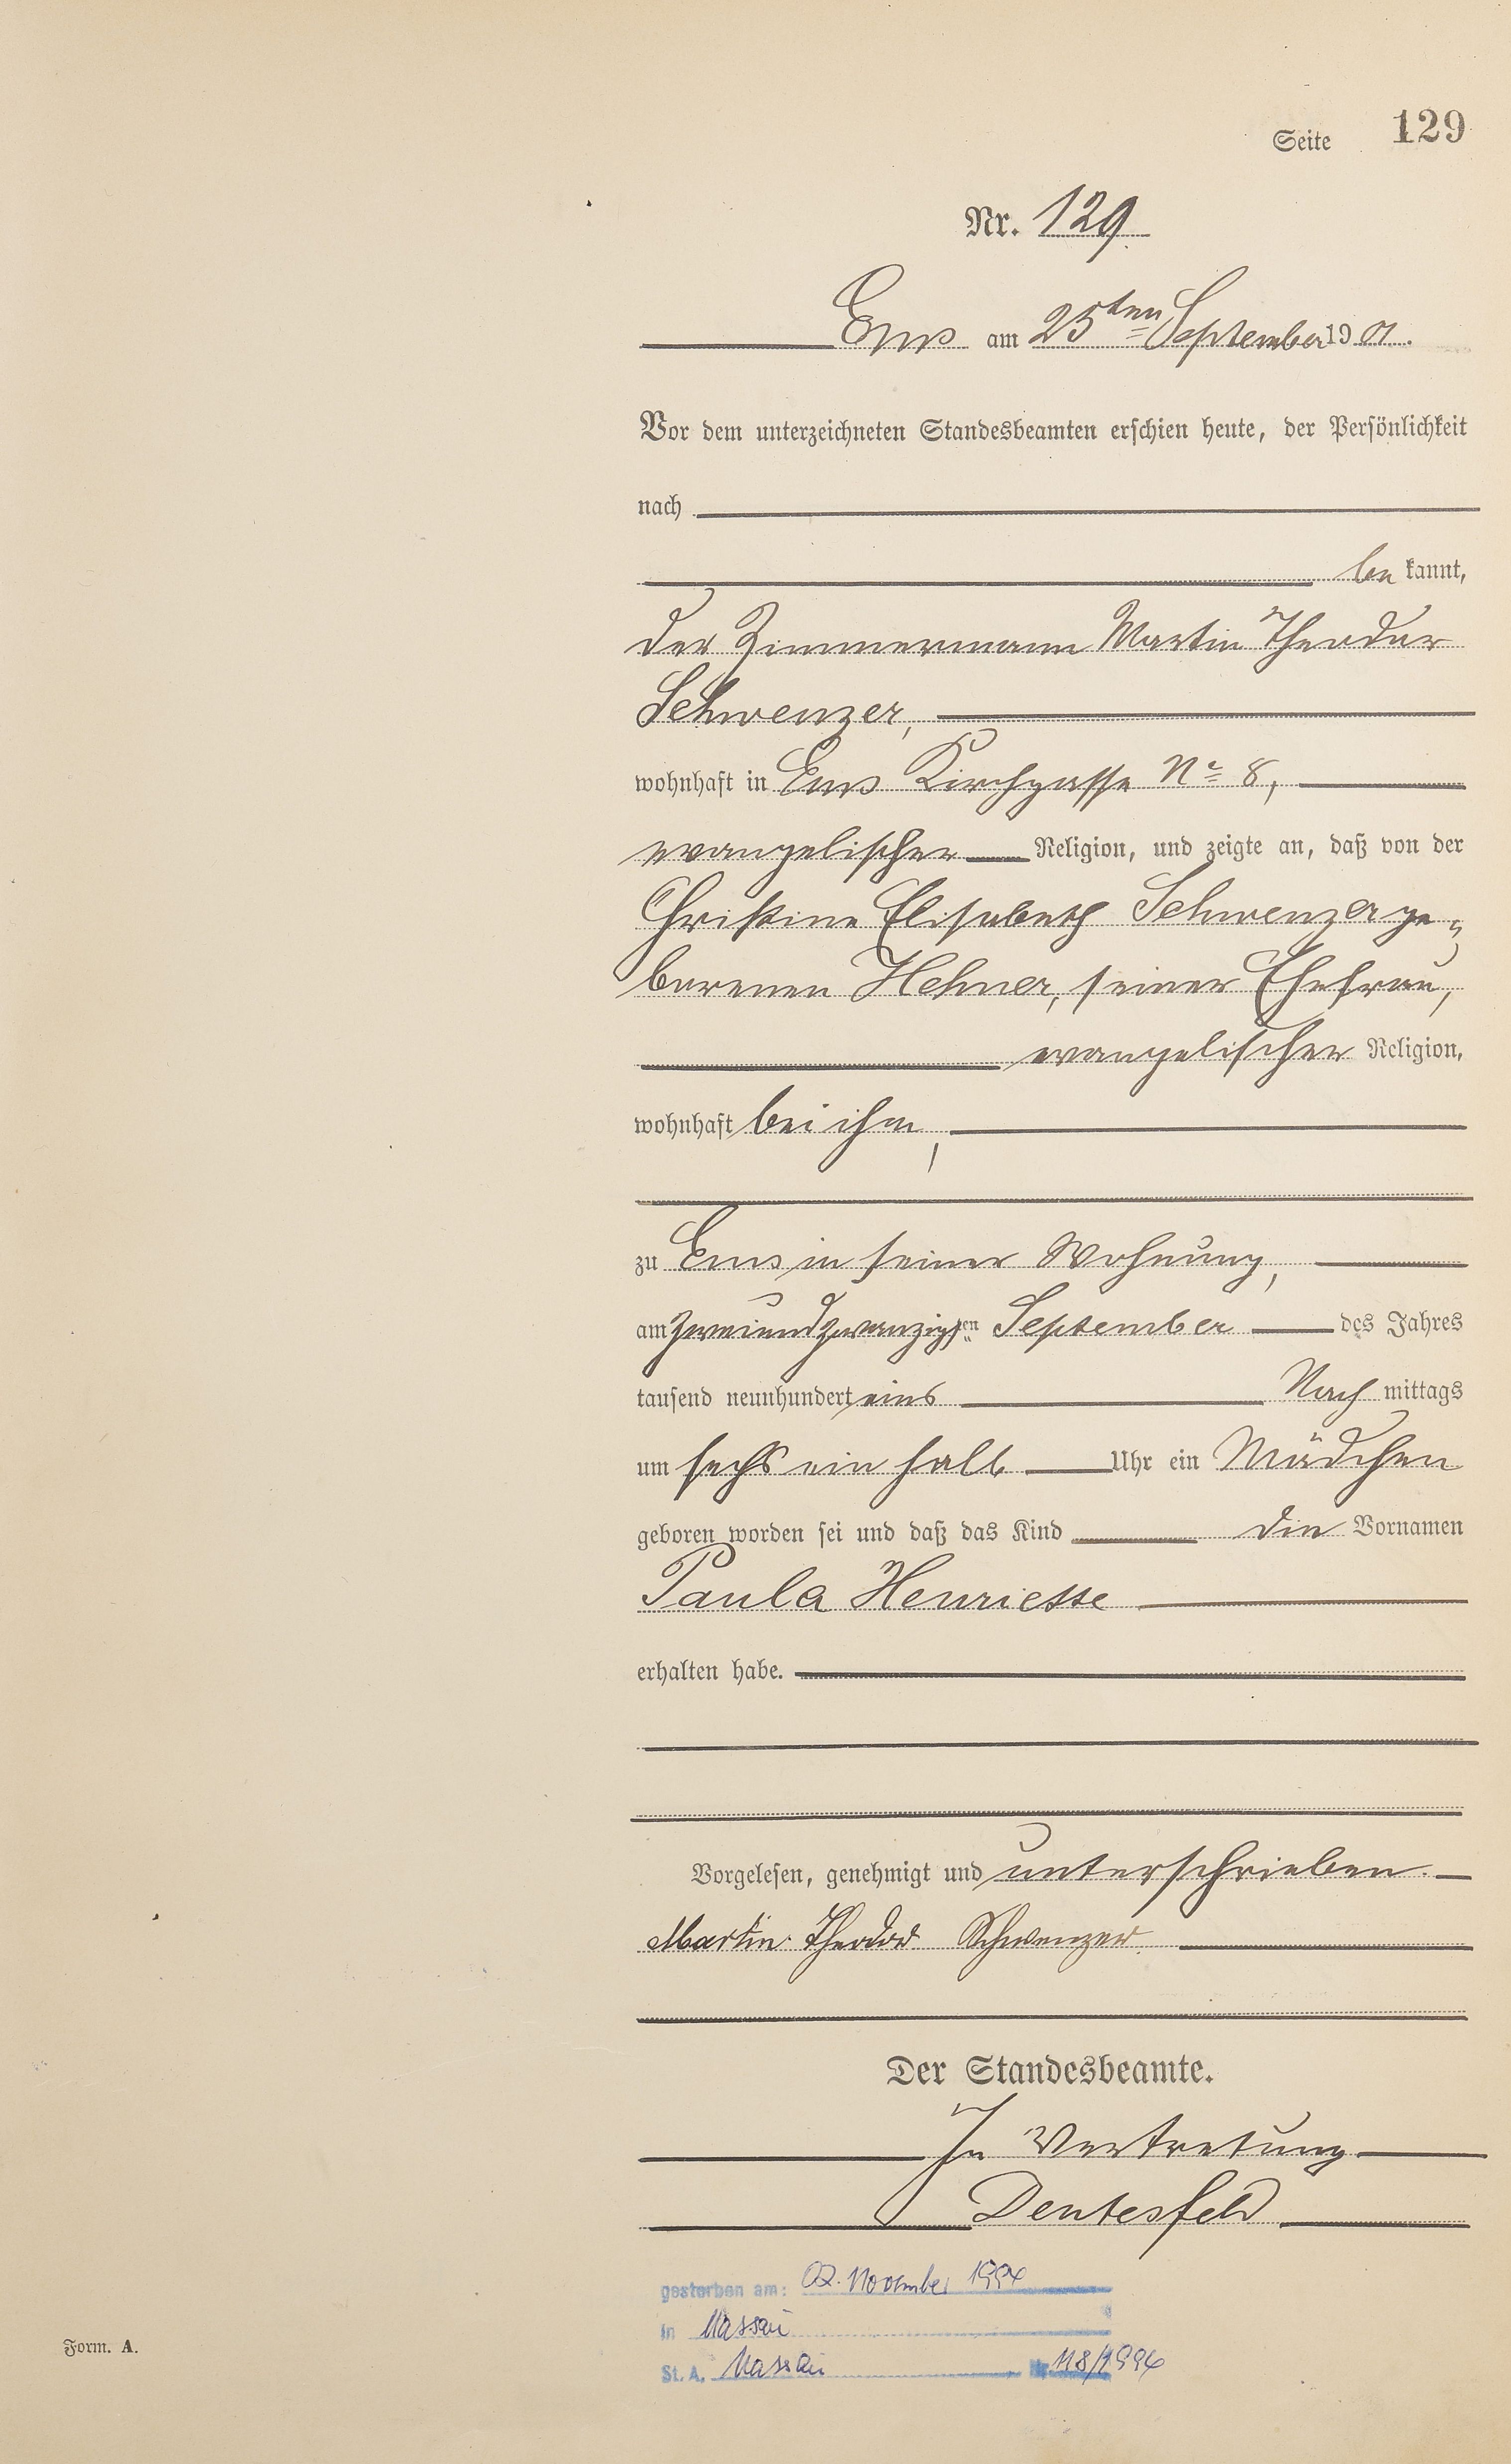 Seite 129
Nr. 129.
Ems am 25ten September 1901.
Vor dem unterzeichneten Standesbeamten erschien heute, der Persönlichkeit
nach
be kannt,
der Zimmermann Martin Theodor
Schwenzer,
wohnhaft in Ems Kirchgasse No 8,
evangelischer Religion, und zeigte an, daß von der
Christine Elisabeth Schwenzer ge-
borenen Hehner, seiner Ehefrau,
evangelischer Religion,
wohnhaft bei ihm,
zu Ems in seiner Wohnung,
am zweiundzwanzigsten September des Jahres
tausend neunhundert eins Nach mittags
um sechs ein halb Uhr ein Mädchen
geboren worden sei und daß das Kind die Vornamen
Paula Henriette
erhalten habe.
Vorgelesen, genehmigt und unterschrieben.
Martin Theodor Schwenzer
Der Standesbeamte.
In Vertretung
Dentesfeld
gestorben am: 02. November 1994
in Nassau
St. A. Nassau Nr. 118/1994
Form. A.